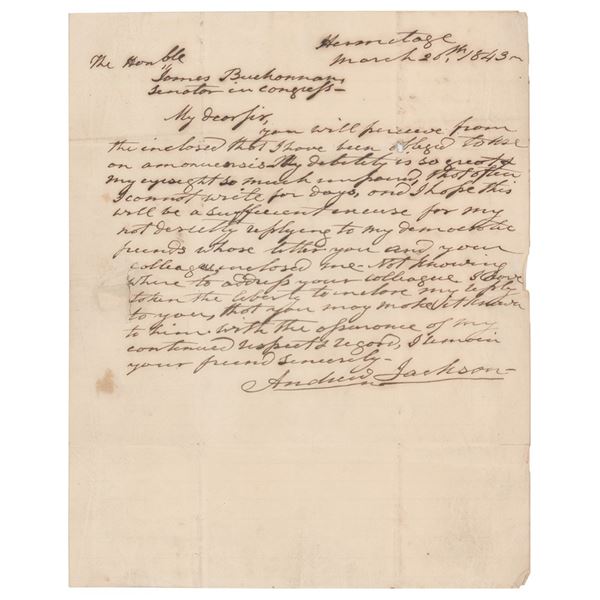 Hermitage
March 20th, 1843—
The Honble
James Buchannan,
Senator in Congress—
My dear sir,
you will perceive from
the inclosed that I have been obliged to use
an amanuensis. My debility is so great, &
my eyesight so much impaired, that often
I cannot write for days, and I hope this
will be a sufficient excuse for my
not directly replying to my democratic
friends whose letter you and your
colleague inclosed me. Not knowing
where to address your colleague I have
taken the liberty to inclose my reply
to you, that you may make it known
to him. with the assurance of my
continued respect & regard, I remain
your friend sincerely—
Andrew Jackson—